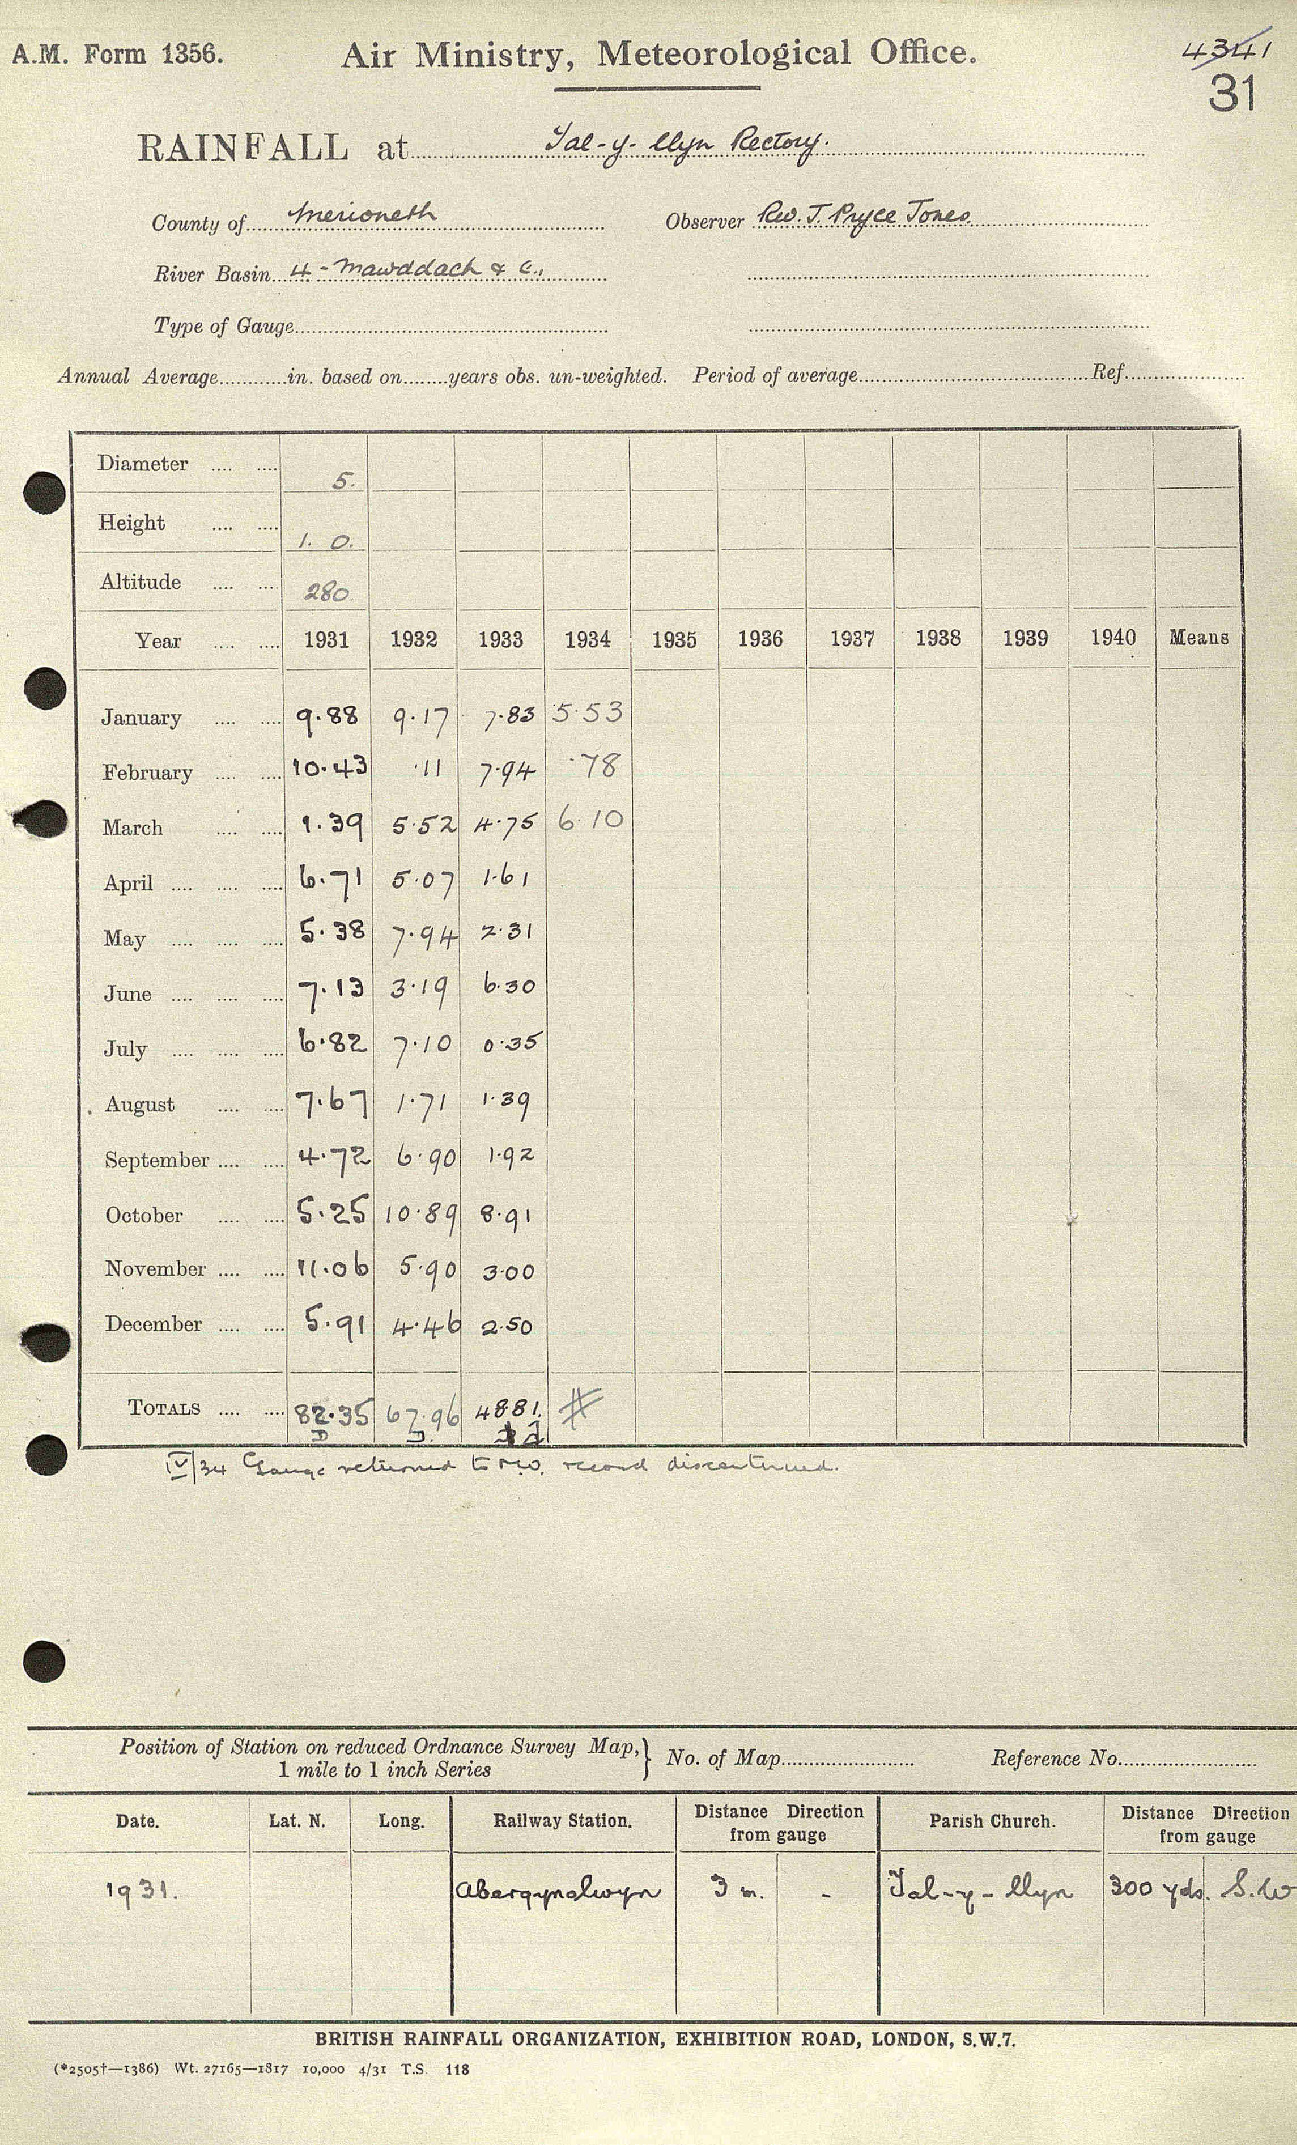 A.M. Form 1356. Air Ministry, Meteorological Office. 4341
31
RAINFALL at Tal-y-llyn Rectory.
County of Merioneth Observer Rev. J. Pryce Jones
River Basin 4 - Mawddach & C.,
Type of Gauge
Annual Average in. based on years obs. un-weighted. Period of average Ref.
Diameter 5.
Height 1. 0.
Altitude 280
Year 1931 1932 1933 1934 1935 1936 1937 1938 1939 1940 Means
January 9.88 9.17 7.83 5.53
February 10.43 .11 7.94 .78
March 1.39 5.52 4.75 6.10
April 6.71 5.07 1.61
May 5.38 7.94 2.31
June 7.13 3.19 6.30
July 6.82 7.10 0.35
August 7.67 1.71 1.39
September 4.72 6.90 1.92
October 5.25 10.89 8.91
November 11.06 5.90 3.00
December 5.91 4.46 2.50
TOTALS 82.35 67.96 48.81
IV/34 Gauge returned to M.O. record discontinued.
Position of Station on reduced Ordnance Survey Map, } No. of Map Reference No.
1 mile to 1 inch Series
Date. Lat. N. Long. Railway Station. Distance Direction Parish Church. Distance Direction
from gauge from gauge
1931. Abergynolwyn 3 m. - Tal-y-llyn 300 yds. S.W
BRITISH RAINFALL ORGANIZATION, EXHIBITION ROAD, LONDON, S.W.7.
(*2505†—1386) Wt. 27165—1817 10,000 4/31 T.S. 118